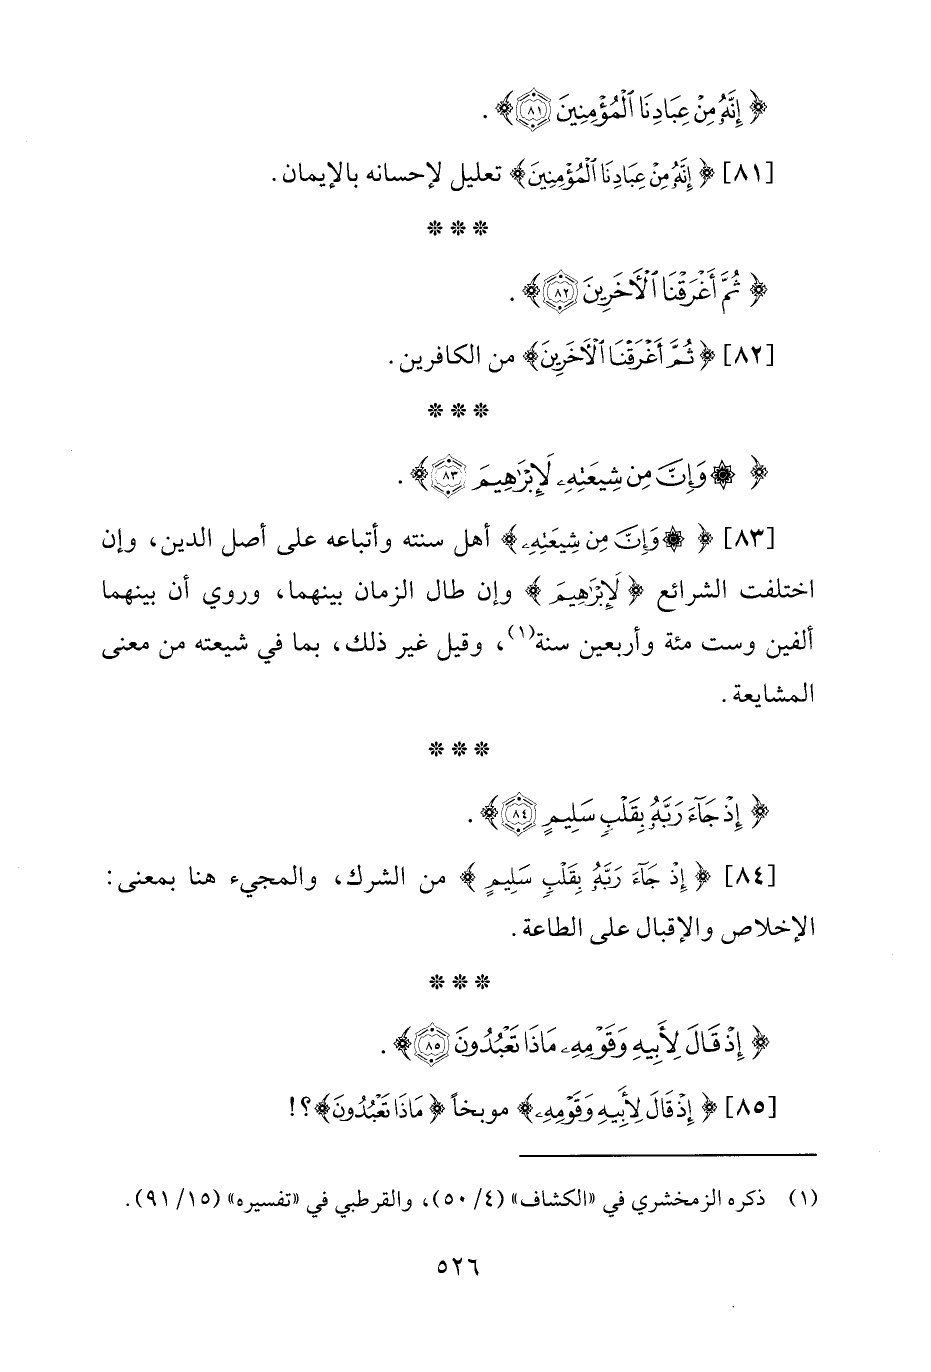 ﴿ إِنَّهُۥ مِنْ عِبَادِنَا ٱلْمُؤْمِنِينَ ٨١ ﴾ .
[٨١] ﴿ إِنَّهُۥ مِنْ عِبَادِنَا ٱلْمُؤْمِنِينَ ﴾ تعليل لإحسانه بالإيمان .
* * *
﴿ ثُمَّ أَغْرَقْنَا ٱلْأٓخَرِينَ ٨٢ ﴾ .
[٨٢] ﴿ ثُمَّ أَغْرَقْنَا ٱلْأٓخَرِينَ ﴾ من الكافرين .
* * *
﴿ ۞ وَإِنَّ مِن شِيعَتِهِۦ لَإِبْرَٰهِيمَ ٨٣ ﴾ .
[٨٣] ﴿ ۞ وَإِنَّ مِن شِيعَتِهِۦ ﴾ أهل سنته وأتباعه على أصل الدين، وإن
اختلفت الشرائع ﴿ لَإِبْرَٰهِيمَ ﴾ وإن طال الزمان بينهما، وروي أن بينهما
ألفين وست مئة وأربعين سنة(١)، وقيل غير ذلك، بما في شيعته من معنى
المشايعة .
* * *
﴿ إِذْ جَآءَ رَبَّهُۥ بِقَلْبٍ سَلِيمٍ ٨٤ ﴾ .
[٨٤] ﴿ إِذْ جَآءَ رَبَّهُۥ بِقَلْبٍ سَلِيمٍ ﴾ من الشرك، والمجيء هنا بمعنى:
الإخلاص والإقبال على الطاعة .
* * *
﴿ إِذْ قَالَ لِأَبِيهِ وَقَوْمِهِۦ مَاذَا تَعْبُدُونَ ٨٥ ﴾ .
[٨٥] ﴿ إِذْ قَالَ لِأَبِيهِ وَقَوْمِهِۦ ﴾ موبخاً ﴿ مَاذَا تَعْبُدُونَ ﴾؟!
(١) ذكره الزمخشري في «الكشاف» (٤/ ٥٠)، والقرطبي في «تفسيره» (١٥/ ٩١).
٥٢٦